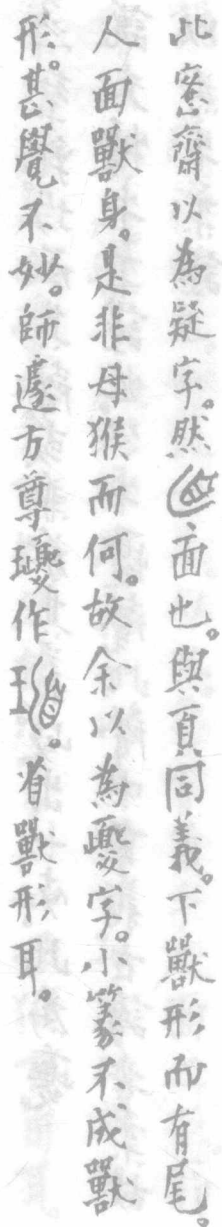 此窓齋以為疑字。然面也。與頁同義。下獸形而有尾。
人面獸身。是非母猴而何。故余以為夒字。小篆不成獸
形。甚覺不妙。師遽方尊瓇作。省獸形耳。